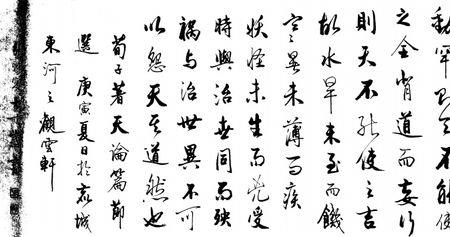 動罕則天不能使
之全背道而妄行
則天不能使之吉
故水旱未至而饑
寒暑未薄而疾
妖怪未生而凶受
時與治世同而殃
禍与治世異不可
以怨天其道然也
荀子著天論篇節
選 庚寅夏日於城
東河之觀雲軒